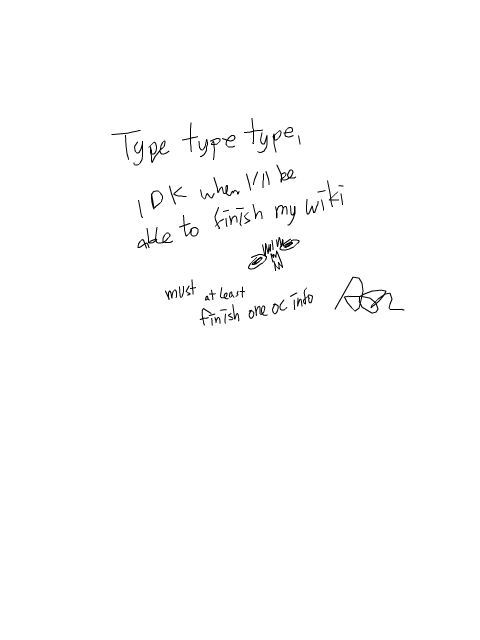 Type type type,
IDK when I'll be
able to finish my wiki
must at least
finish one oc info